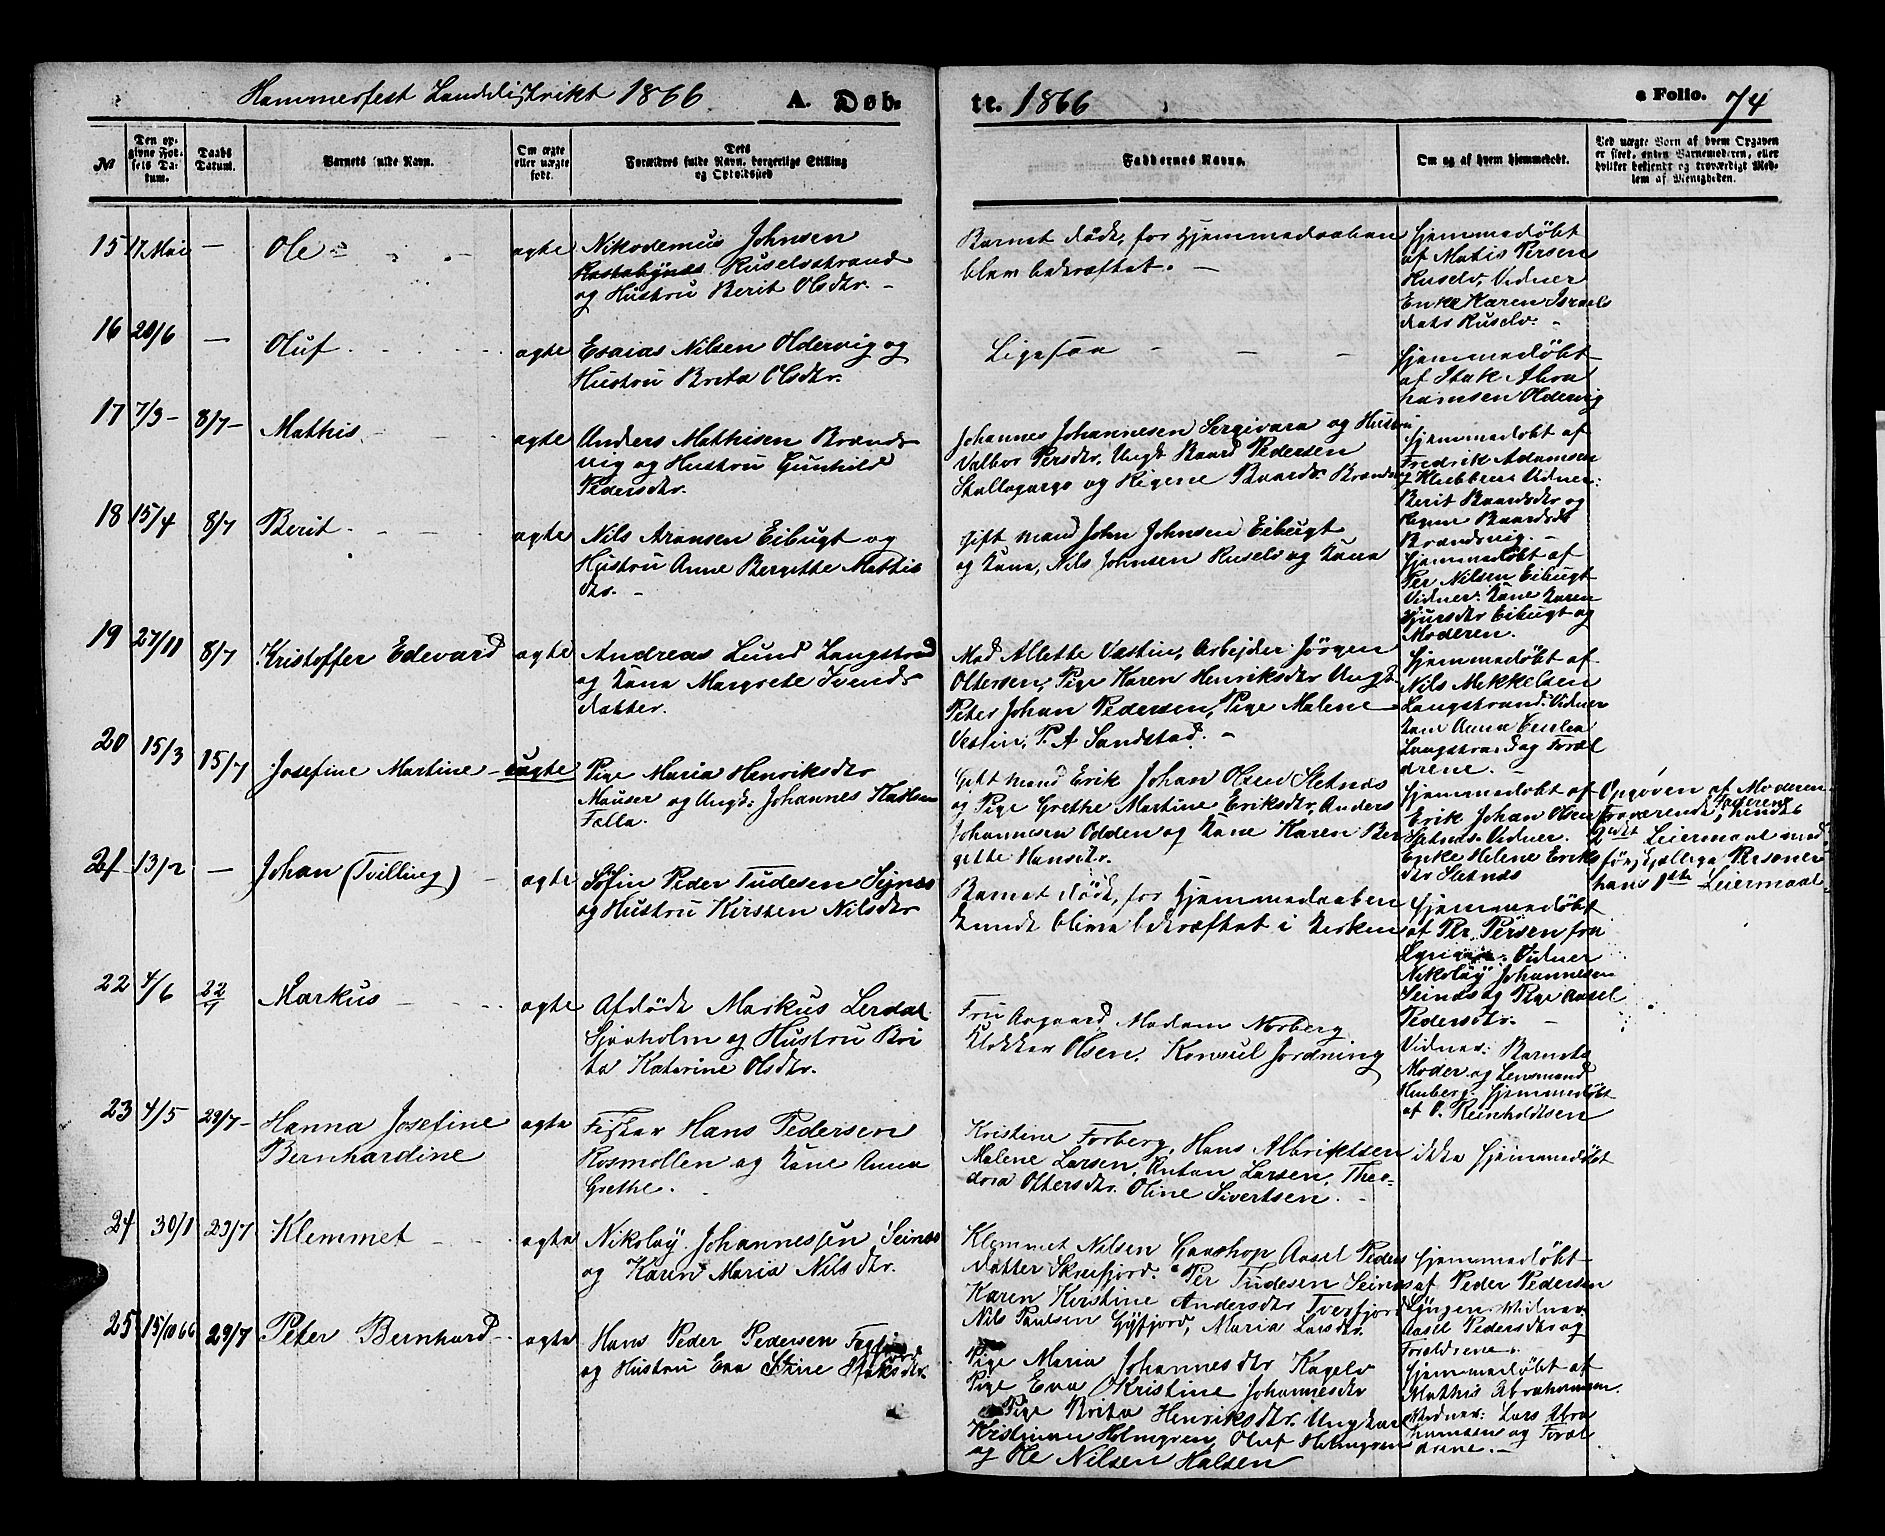 Hammerfest Landdistrikt 1866. A. Døb-
te. 1866 a Folio. 74
№
Den op-
givne Fød-
sels Da-
tum.
Daabs
Datum.
Barnets fulde Navn.
Om ægte
eller uægte
født.
Dets
Forældres fulde Navn, borgerlige Stilling
og Opholdssted
Faddernes Navne.
Om og af hvem hjemmedøbt.
Ved uægte Børn af hvem Opgaven
er skeet, enten Barnemoderen, eller
hvilket bekjendt og troværdigt Med-
lem af Menigheden.
15 17. Mai — Ole ægte
Nikodemus Johnsen
Ruselvstrand
og Hustru Berit Olsdtr. -
Barnet døde, før Hjemmedaaben
blev bekræftet. —
Hjemmedøbt
af Matis Persen
Ruselv, Vidner
Enke Karen Israels
datr Ruselv. -
16 20/6 — Oluf ægte
Esaias Nilsen Oldervig og
Hustru Brita Olsdtr.
Ligesaa — — —
Hjemmedøbt
af Isak Abra
hamsen Oldervig
17 7/3 — 8/7 — Mathis ægte
Anders Mathisen Brands
vig og Hustru Gunhild
Pedersdtr.
Johannes Johannesen Sergivara og Hustru
Valbor Persdtr, Ungk Baard Pedersen
Stallogargo og Regine Baardsdtr Brandsvig
Hjemmedøbt af
Fredrik Adamsen
Klubben Vidner:
Berit Baardsdtr og
Regine Baardsdtr
Brandsvig. -
18 15/4 8/7 Berit ægte
Nils Aronsen Eibugt og
Hustru Anne Bergitte Mattis
dtr. -
Gift Mand John Johnsen Eibugt
og Kone, Nils Johnsen Ruselv og Kone
Hjemmedøbt af
Per Nilsen Eibugt
Vidner: Kone Karen
Gjursdtr Eibugt og
Moderen.
19 27/11 8/7 Kristoffer Edevard ægte
Andreas Lund Langstrand
og Kone Margrete Svends
datter.
Mad Allette Vestin, Arbejder Jørgen
Ottersen, Pige Karen Henriksdtr Ungk
Peter Johan Pedersen, Pige Malene
Vestin, P. A Sandstad. -
Hjemmedøbt af
Nils Mikkelsen
Langstrand. Vidner
Kone Anna
Langstrand og Foræl
drene. -
20 15/3 15/7 Josefine Martine — uægte
Pige Maria Henriksdtr
Mauser og Ungk: Johannes
Falla.
Gift Mand Erik Johan Olsen Sletnæs
og Pige Grethe Martine Eriksdtr, Anders
Johannesen Odden og Kone Karen Ber
gitte Hansdtr.
Hjemmedøbt af
Erik Johan Olsen
Sletnæs. Vidner.
Enke Helene Eriks
dtr Sletnæs
Opgaven af Moderen
Faderen
Fraværende, hendes
2det Leiermaal med
forskjællige Personer
hans 1ste Leiermaal.
21 13/2 — Johan (Tvilling) — ægte
Søfin Peder Tudesen Sejnæs
og Hustru Kirsten Nilsdtr
Barnet døde, før Hjemmedaaben
kunde blive bekræftet i Kirken
Hjemmedøbt
af Per Persen fra
Vidner
Nikolaÿ Johannesen
Seinæs og Pige Aasel
Pedersdtr. —
22 4/6 22/7 Markus — ægte
Afdøde Markus Lerdal
Sjøholm og Hustru Bri
ta Katerine Olsdtr.
Fru Aagaard, Madam Norberg
Klokker Olsen, Konsul Jordning
Vidner: Barnets
Moder og Lensmand
Hjemmedøbt
af O. Reinholdtsen
23 4/5 29/7 — Hanna Josefine
Bernhardine
ægte
Fisker Hans Pedersen
Rosmollen og Kone Anna
Grethe.
Kristine Forberg, Hans Albriktsen
Malene Larsen, Anton Larsen, Theo-
dora Ottersdtr. Oline Sivertsen.
ikke Hjemmedøbt
24 30/1 23/7 Klemmet ægte
Nikolaÿ Johannessen Seinæs
og Karen Maria Nilsdtr.
Klemmet Nilsen Gaashop Aasel Peders
datter Skreifjord. Per Tudesen Seinæs
Karen Kirstine Andersdtr Tverfjord
Nils Paulsen Gÿfjord, Maria Larsdtr.
Hjemmedøbt
af Peder Pedersen
Lÿngen. Vidner
Aasel Pedersdtr og
Forældrene.
25 15/10 66 29/7 Peter Bernhard ægte
Hans Peder Pedersen
og Hustru Eva Stine Isaksdtr.
Pige Maria Johannesdtr Kogelv
Pige Eva Kristine Johannesdtr
Pige Brita Henriksdtr. Ungkar
Kristian Holmgren, Oluf Holmgren
og Ole Nilsen Halsen
Hjemmedøbt af
Mathis Abrahamsen.
Vidner: Lars Abra
hamsen og Foræl
drene. -